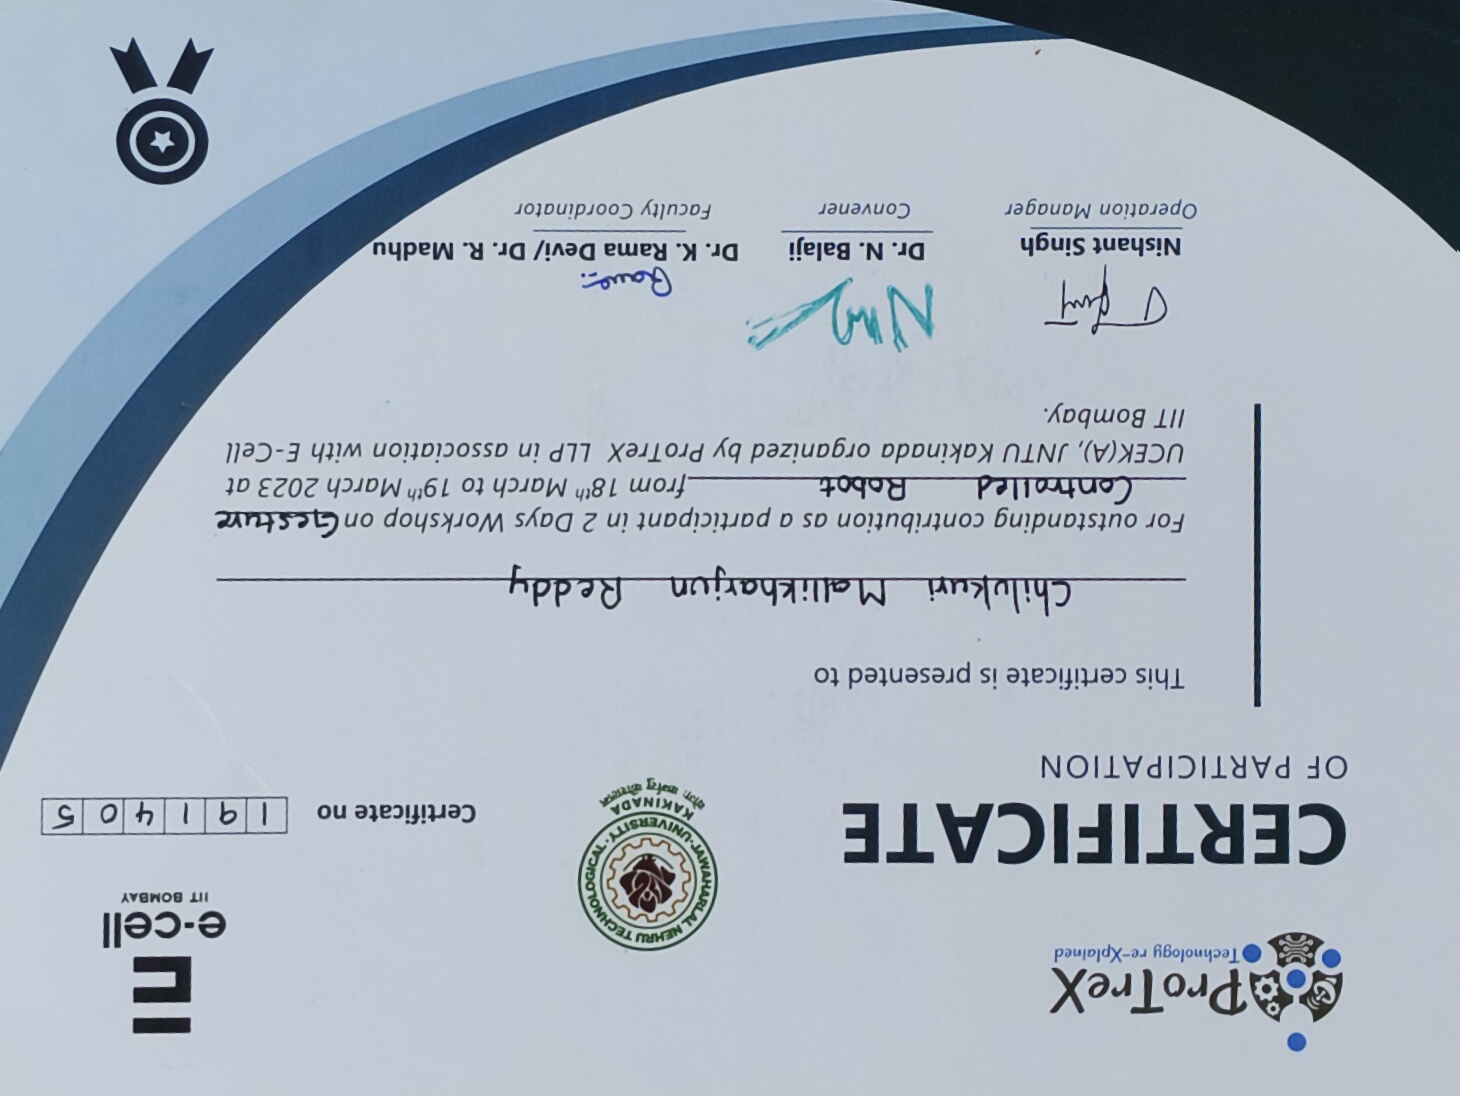 ProTreX
Technology re-Xplained
e-cell
IIT BOMBAY
JAWAHARLAL NEHRU TECHNOLOGICAL UNIVERSITY
KAKINADA
योगः कर्मसु कौशलम्
CERTIFICATE
OF PARTICIPATION
Certificate no 191405
This certificate is presented to
Chilukuri Mallikharjun Reddy
For outstanding contribution as a participant in 2 Days Workshop on Gesture
Controlled Robot from 18th March to 19th March 2023 at
UCEK(A), JNTU Kakinada organized by ProTreX LLP in association with E-Cell
IIT Bombay.
Nishant Singh
Operation Manager
Dr. N. Balaji
Convener
Dr. K. Rama Devi/ Dr. R. Madhu
Faculty Coordinator